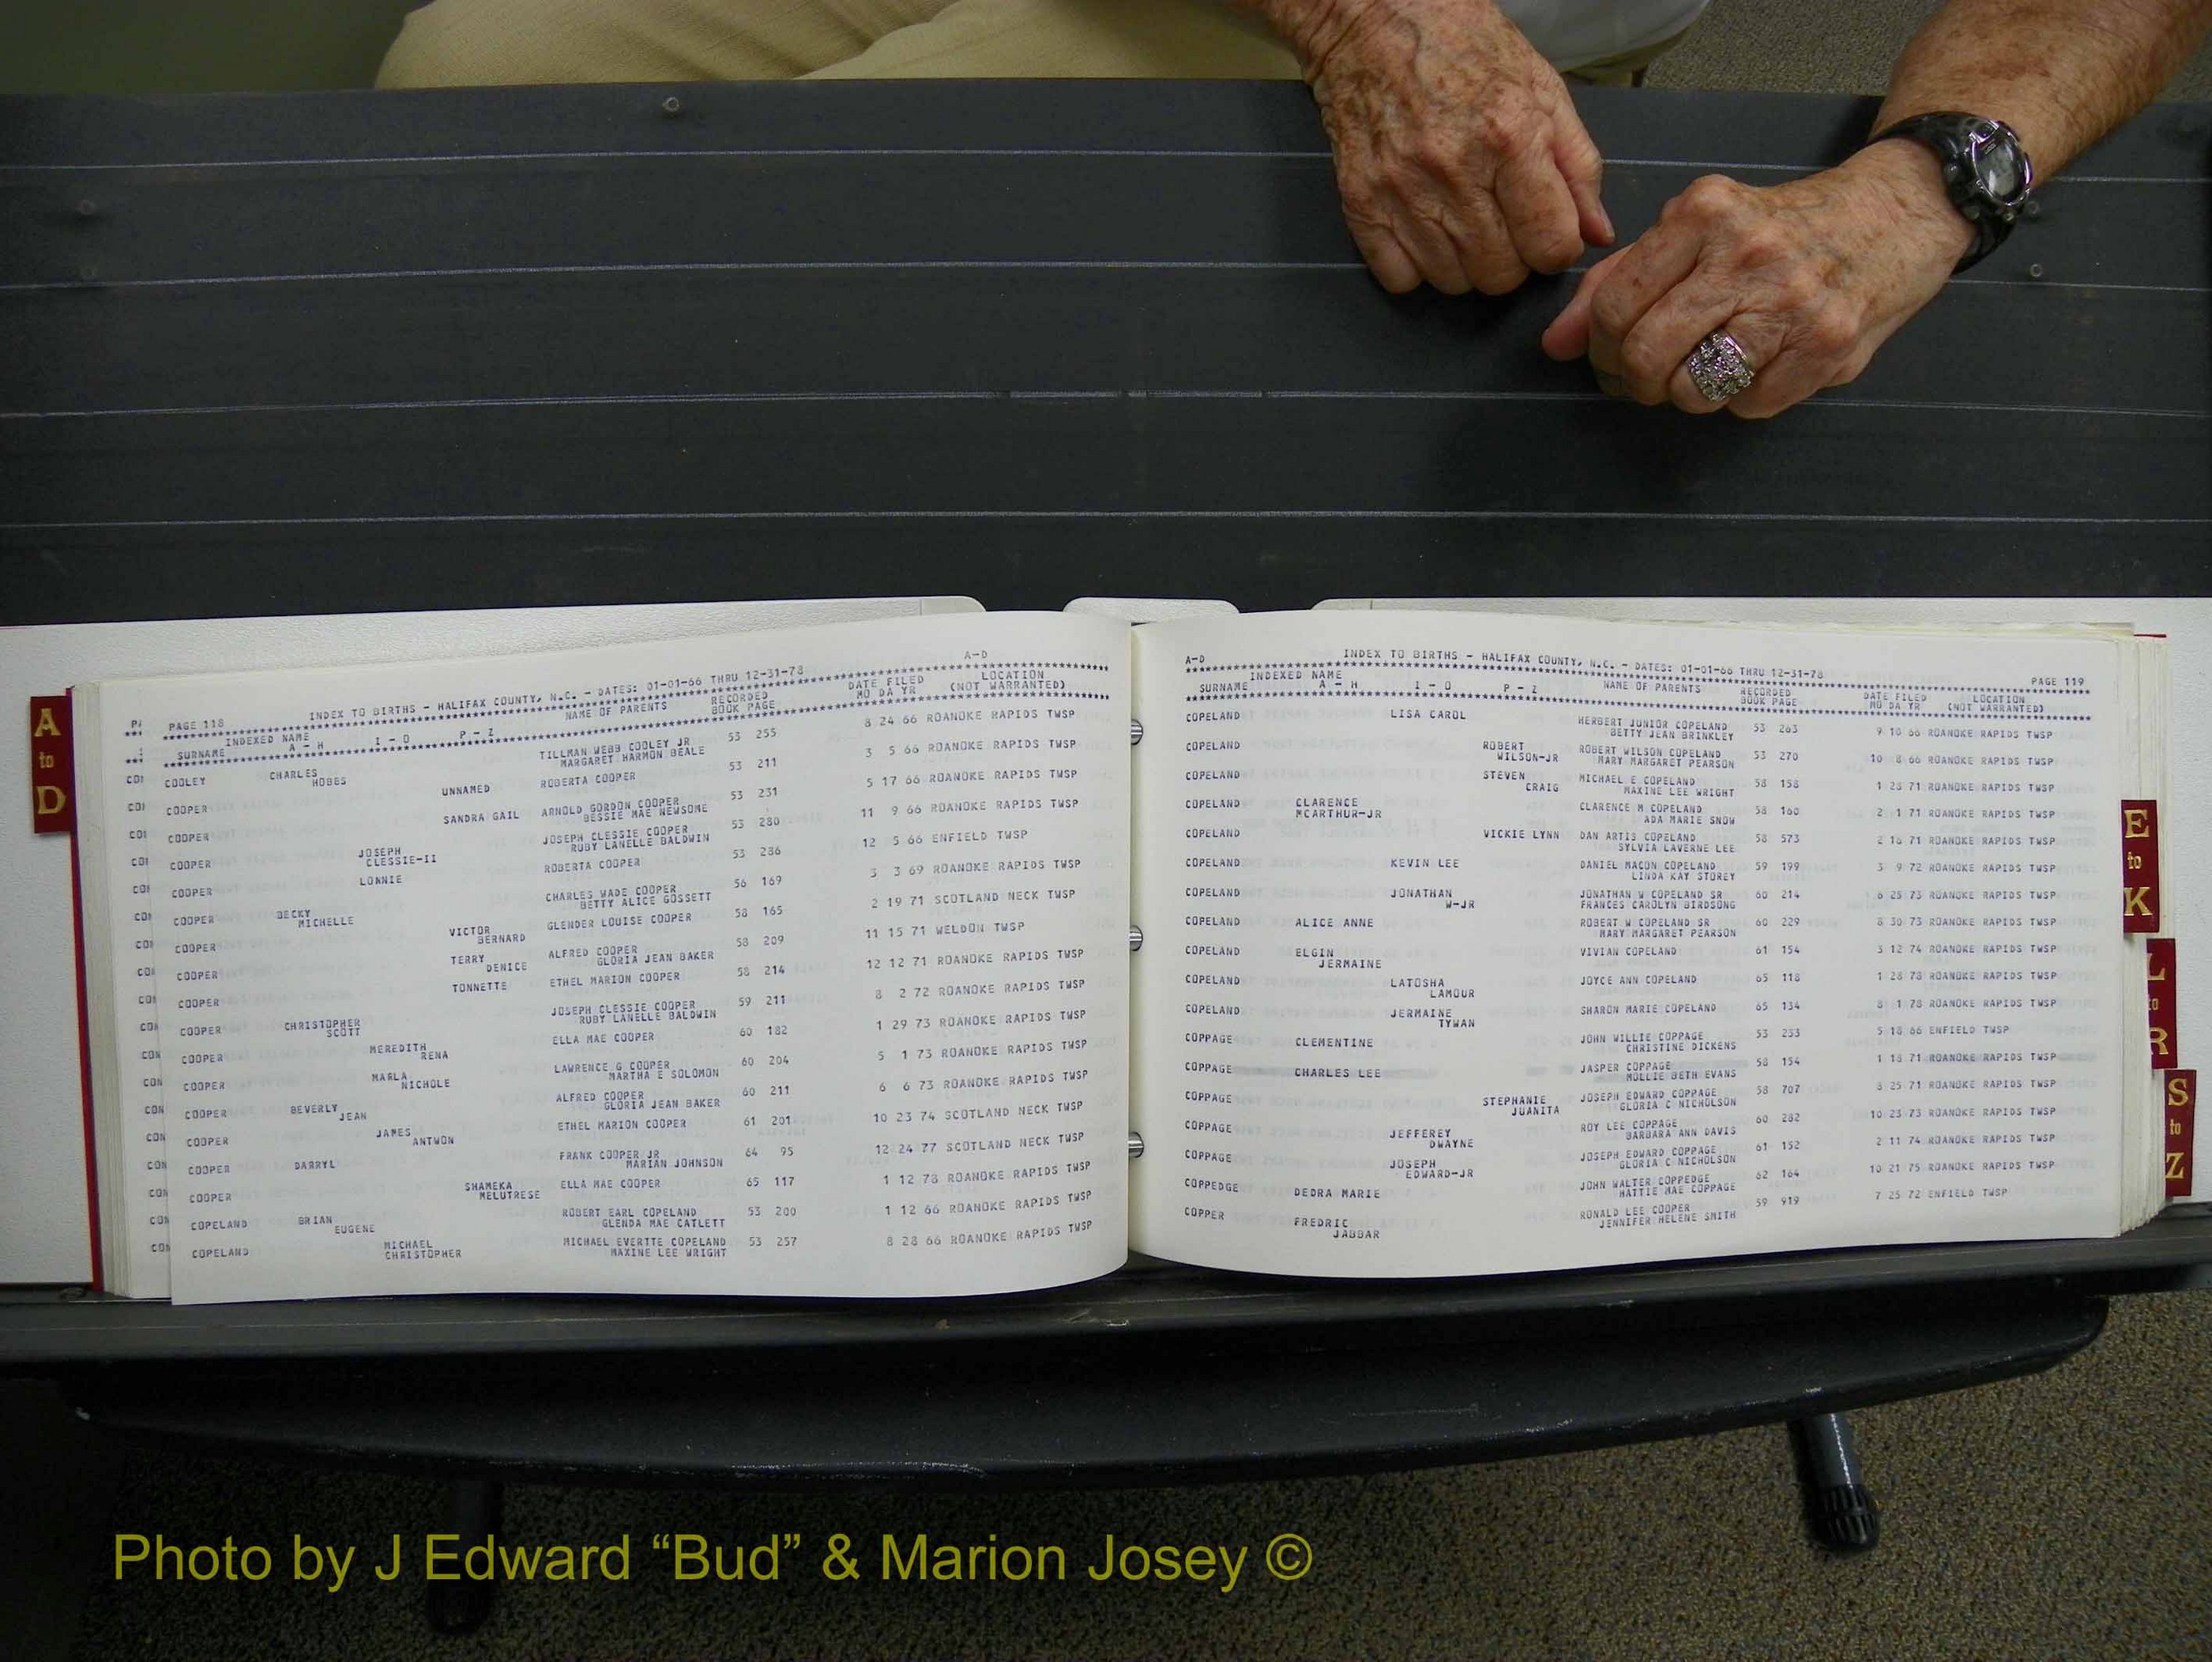 A
to
D
PAGE 118 INDEX TO BIRTHS - HALIFAX COUNTY, N.C. - DATES: 01-01-66 THRU 12-31-78 A-D
INDEXED NAME RECORDED DATE FILED LOCATION
SURNAME A - H I - O P - Z NAME OF PARENTS BOOK PAGE MO DA YR (NOT WARRANTED)
COOLEY CHARLES TILLMAN WEBB COOLEY JR 53 255 8 24 66 ROANOKE RAPIDS TWSP
HOBBS MARGARET HARMON BEALE
COOPER UNNAMED ROBERTA COOPER 53 211 3 5 66 ROANOKE RAPIDS TWSP
COOPER SANDRA GAIL ARNOLD GORDON COOPER 53 231 5 17 66 ROANOKE RAPIDS TWSP
BESSIE MAE NEWSOME
COOPER JOSEPH JOSEPH CLESSIE COOPER 53 280 11 9 66 ROANOKE RAPIDS TWSP
CLESSIE-II RUBY LANELLE BALDWIN
COOPER LONNIE ROBERTA COOPER 53 286 12 5 66 ENFIELD TWSP
COOPER BECKY CHARLES WADE COOPER 56 169 3 3 69 ROANOKE RAPIDS TWSP
MICHELLE BETTY ALICE GOSSETT
COOPER VICTOR GLENDER LOUISE COOPER 58 165 2 19 71 SCOTLAND NECK TWSP
BERNARD
COOPER TERRY ALFRED COOPER 58 209 11 15 71 WELDON TWSP
DENICE GLORIA JEAN BAKER
COOPER TONNETTE ETHEL MARION COOPER 58 214 12 12 71 ROANOKE RAPIDS TWSP
COOPER CHRISTOPHER JOSEPH CLESSIE COOPER 59 211 8 2 72 ROANOKE RAPIDS TWSP
SCOTT RUBY LANELLE BALDWIN
COOPER MEREDITH ELLA MAE COOPER 60 182 1 29 73 ROANOKE RAPIDS TWSP
RENA
COOPER MARLA LAWRENCE G COOPER 60 204 5 1 73 ROANOKE RAPIDS TWSP
NICHOLE MARTHA E SOLOMON
COOPER BEVERLY ALFRED COOPER 60 211 6 6 73 ROANOKE RAPIDS TWSP
JEAN GLORIA JEAN BAKER
COOPER JAMES ETHEL MARION COOPER 61 201 10 23 74 SCOTLAND NECK TWSP
ANTWON
COOPER DARRYL FRANK COOPER JR 64 95 12 24 77 SCOTLAND NECK TWSP
MARIAN JOHNSON
COOPER SHAMEKA ELLA MAE COOPER 65 117 1 12 78 ROANOKE RAPIDS TWSP
MELUTRESE
COPELAND BRIAN ROBERT EARL COPELAND 53 200 1 12 66 ROANOKE RAPIDS TWSP
EUGENE GLENDA MAE CATLETT
COPELAND MICHAEL MICHAEL EVERTTE COPELAND 53 257 8 28 66 ROANOKE RAPIDS TWSP
CHRISTOPHER MAXINE LEE WRIGHT
A-D INDEX TO BIRTHS - HALIFAX COUNTY, N.C. - DATES: 01-01-66 THRU 12-31-78 PAGE 119
INDEXED NAME RECORDED DATE FILED LOCATION
SURNAME A - H I - O P - Z NAME OF PARENTS BOOK PAGE MO DA YR (NOT WARRANTED)
COPELAND LISA CAROL HERBERT JUNIOR COPELAND 53 263 9 10 66 ROANOKE RAPIDS TWSP
BETTY JEAN BRINKLEY
COPELAND ROBERT ROBERT WILSON COPELAND 53 270 10 8 66 ROANOKE RAPIDS TWSP
WILSON-JR MARY MARGARET PEARSON
COPELAND STEVEN MICHAEL E COPELAND 58 158 1 28 71 ROANOKE RAPIDS TWSP
CRAIG MAXINE LEE WRIGHT
COPELAND CLARENCE CLARENCE M COPELAND 58 160 2 1 71 ROANOKE RAPIDS TWSP
MCARTHUR-JR ADA MARIE SNOW
COPELAND VICKIE LYNN DAN ARTIS COPELAND 58 573 2 16 71 ROANOKE RAPIDS TWSP
SYLVIA LAVERNE LEE
COPELAND KEVIN LEE DANIEL MACON COPELAND 59 199 3 9 72 ROANOKE RAPIDS TWSP
LINDA KAY STOREY
COPELAND JONATHAN JONATHAN W COPELAND SR 60 214 6 25 73 ROANOKE RAPIDS TWSP
W-JR FRANCES CAROLYN BIRDSONG
COPELAND ALICE ANNE ROBERT W COPELAND SR 60 229 8 30 73 ROANOKE RAPIDS TWSP
MARY MARGARET PEARSON
COPELAND ELGIN VIVIAN COPELAND 61 154 3 12 74 ROANOKE RAPIDS TWSP
JERMAINE
COPELAND LATOSHA JOYCE ANN COPELAND 65 118 1 28 78 ROANOKE RAPIDS TWSP
LAMOUR
COPELAND JERMAINE SHARON MARIE COPELAND 65 134 8 1 78 ROANOKE RAPIDS TWSP
TYWAN
COPPAGE CLEMENTINE JOHN WILLIE COPPAGE 53 233 5 18 66 ENFIELD TWSP
CHRISTINE DICKENS
COPPAGE CHARLES LEE JASPER COPPAGE 58 154 1 18 71 ROANOKE RAPIDS TWSP
MOLLIE BETH EVANS
COPPAGE STEPHANIE JOSEPH EDWARD COPPAGE 58 707 8 25 71 ROANOKE RAPIDS TWSP
JUANITA GLORIA C NICHOLSON
COPPAGE JEFFEREY ROY LEE COPPAGE 60 282 10 23 73 ROANOKE RAPIDS TWSP
DWAYNE BARBARA ANN DAVIS
COPPAGE JOSEPH JOSEPH EDWARD COPPAGE 61 152 2 11 74 ROANOKE RAPIDS TWSP
EDWARD-JR GLORIA C NICHOLSON
COPPEDGE DEDRA MARIE JOHN WALTER COPPEDGE 62 164 10 21 75 ROANOKE RAPIDS TWSP
HATTIE MAE COPPAGE
COPPER FREDRIC RONALD LEE COOPER 59 919 7 25 72 ENFIELD TWSP
JABBAR JENNIFER HELENE SMITH
E
to
K
L
to
R
S
to
Z
Photo by J Edward “Bud” & Marion Josey ©